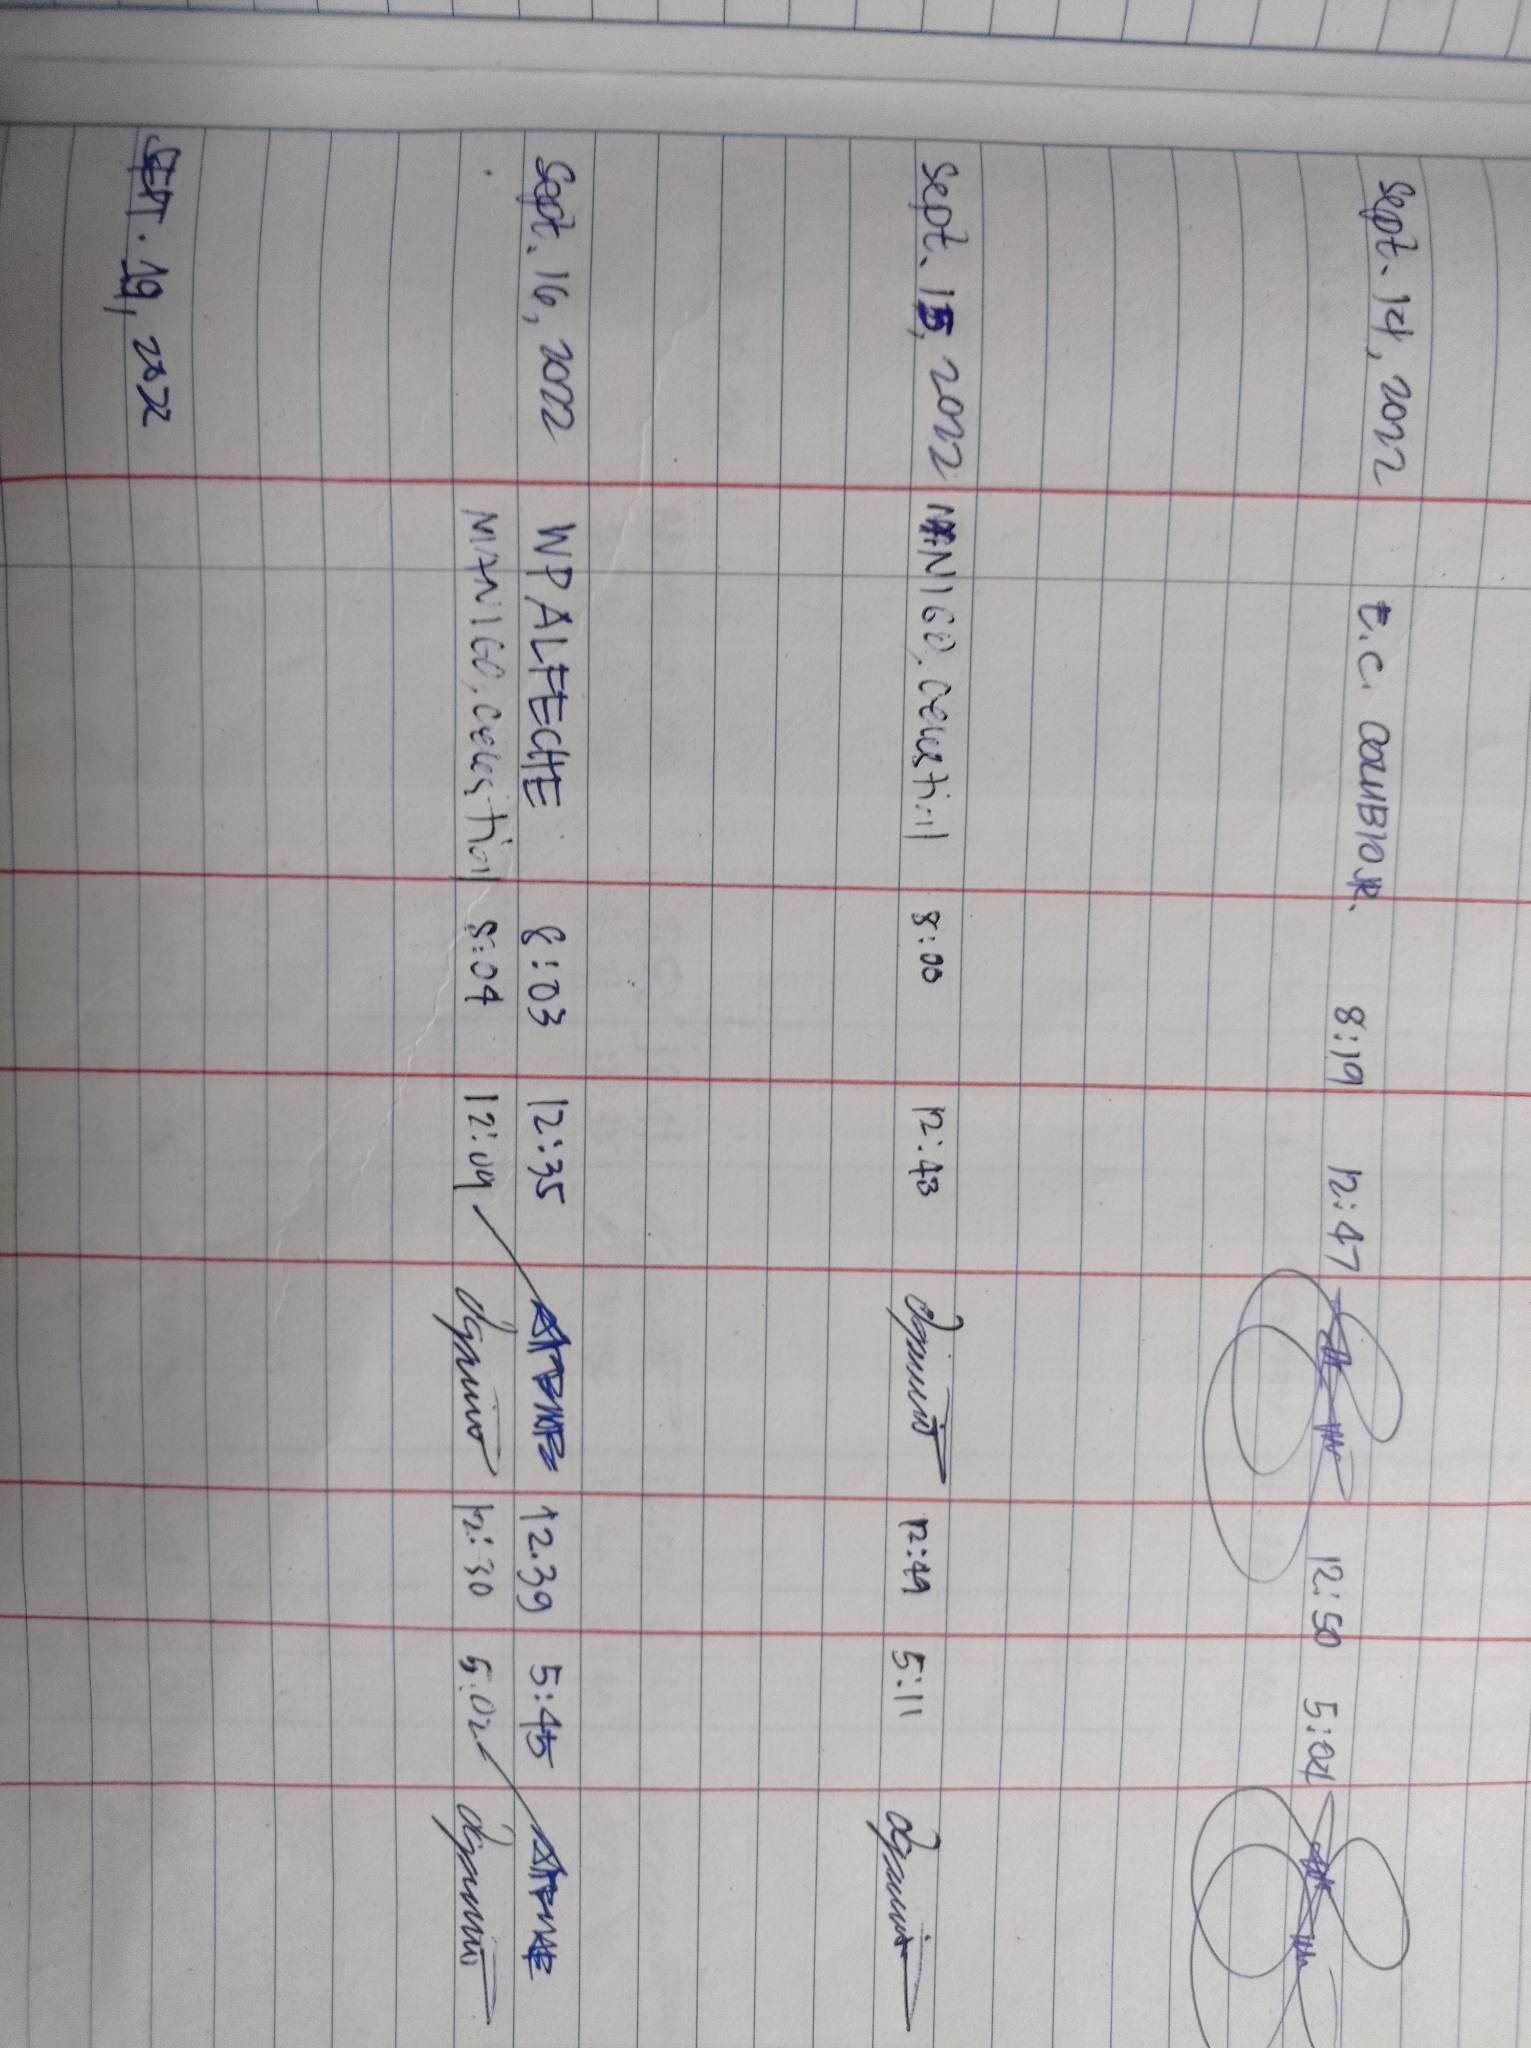 Sept. 14, 2022 8:19 12:47 12:50 5:04
Sept. 15, 2022 MANIGO, celestial 8:00 12:43 12:49 5:11
Sept. 16, 2022 WPALFECHE 8:03 12:35 12.39 5:45
MANIGO, celestial 8:04 12:09 12:30 5:02
SEPT. 19, 2022